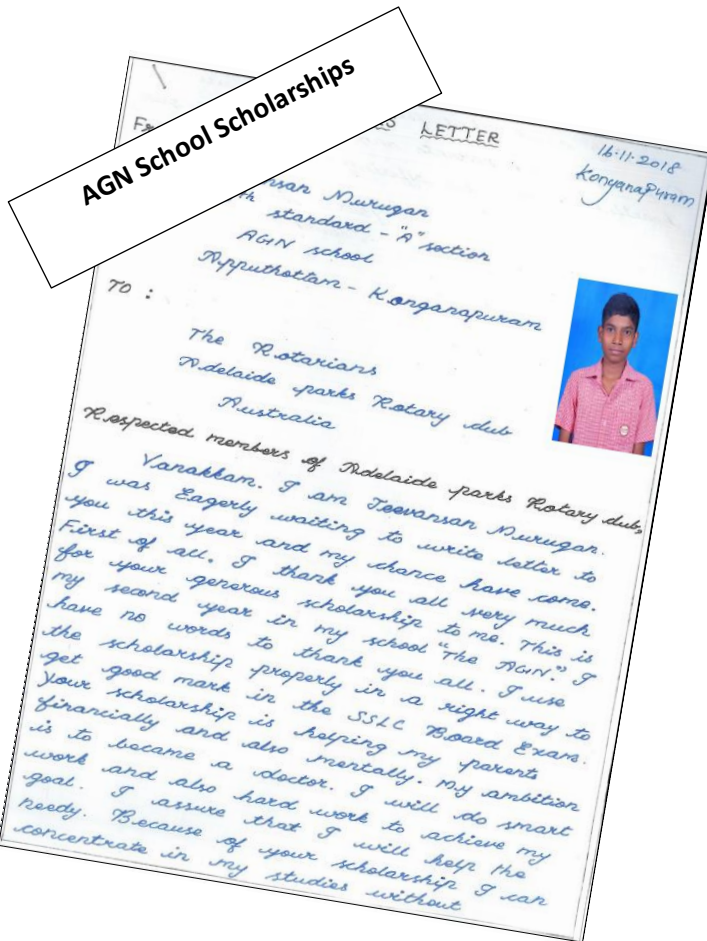 AGN School Scholarships
LETTER
16.11.2018
Konganapuram
Murugan
th standard - "A" section
AGN school
Apputhottam - Konganapuram
TO :
The Rotarians
Adelaide parks Rotary club
Australia
Respected members of Adelaide parks Rotary club,
Vanakkam. I am Jeevansan Murugan.
I was Eagerly waiting to write letter to
you this year and my chance have come.
First of all. I thank you all very much
for your generous scholarship to me. This is
my second year in my school "The AGN." I
have no words to thank you all. I use
the scholarship properly in a right way to
get good mark in the SSLC Board Exam.
Your scholarship is helping my parents
financially and also mentally. My ambition
is to became a doctor. I will do smart
work and also hard work to achieve my
goal. I assure that I will help the
needy. Because of your scholarship I can
concentrate in my studies without